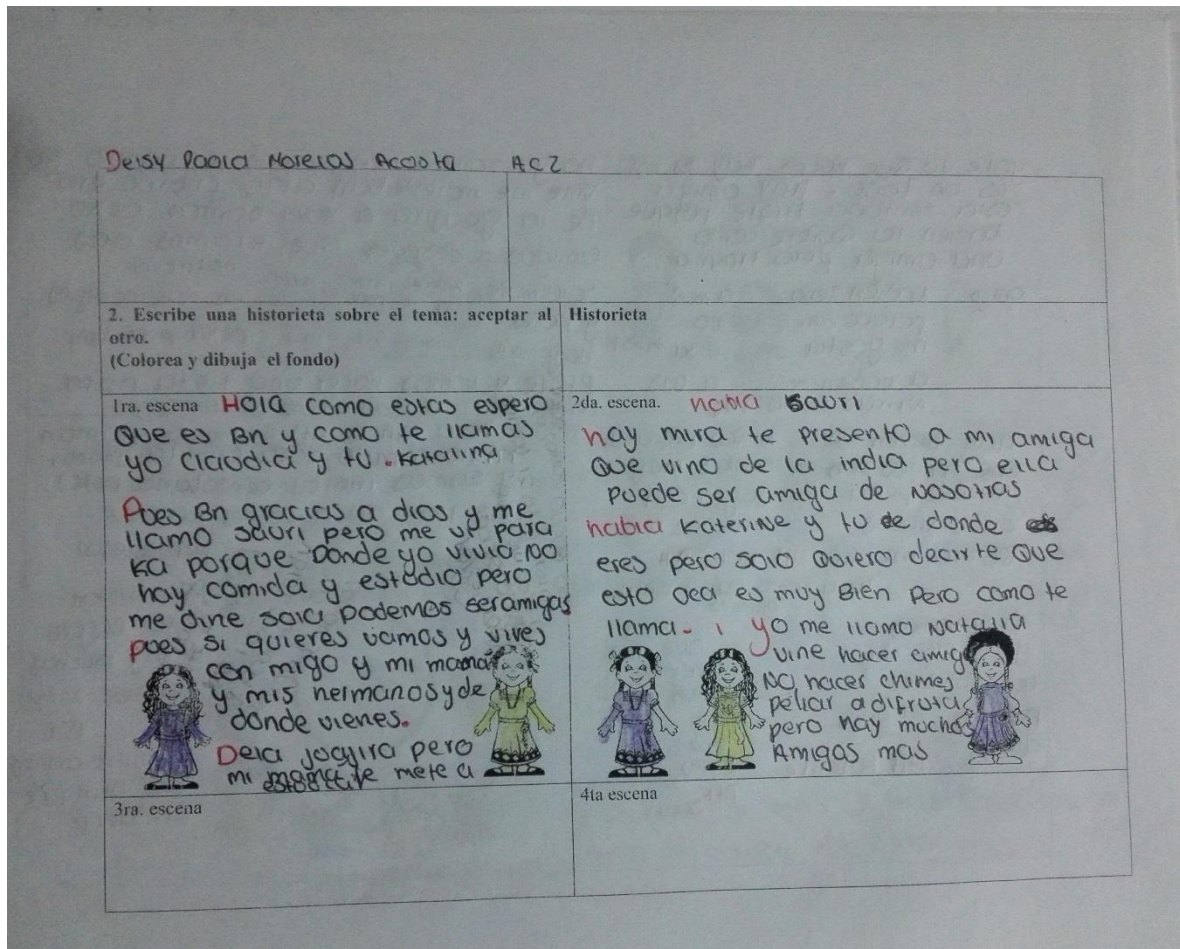 Deisy Paola Morelos Acosta AC2
2. Escribe una historieta sobre el tema: aceptar al
otro.
(Colorea y dibuja el fondo)
Historieta
1ra. escena Hola como estas espero
Que es Bn y como te llamas
yo claudia y tu. Katalina
Pues Bn gracias a dios y me
llamo sauri pero me vi para
ka porque Donde yo vivia no
hay comida y estudio pero
me dine sola podemos ser amigas
pues si quieres vamos y vives
con migo y mi mama
y mis hermanos y de
donde vienes.
Dela joajira pero
mi
mete a
2da. escena. habla sauri
hay mira te presento a mi amiga
Que vino de la india pero ella
puede ser amiga de Nosotras
habla Katerine y tu de donde
eres pero solo Quiero decirte Que
esto aca es muy Bien Pero como te
llama. i yo me llamo Natalia
vine hacer amig
No hacer chimes
peliar a difruta
pero hay muchos
Amigas mas
3ra. escena
4ta escena